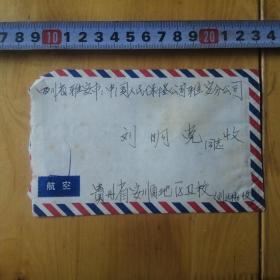 7 8 9 10 1 2 3 4 5 6 7 8 9 20 1 2 3 4
四川省雅安市：中国人民保险公司雅安分公司
刘明党 同志 收
航空
贵州省安顺地区卫校